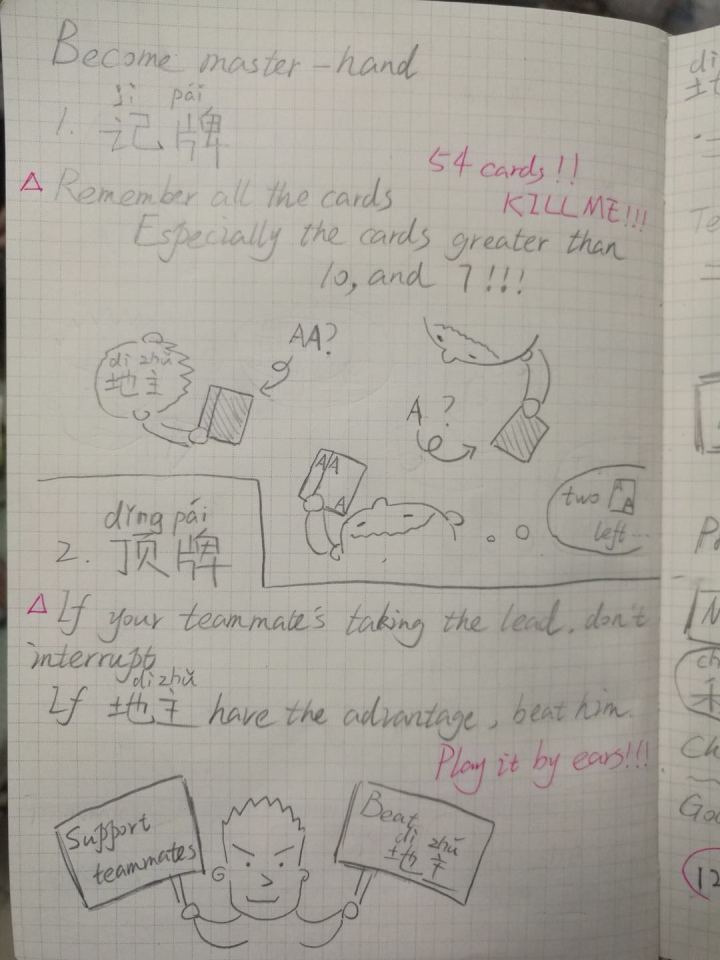 Become master-hand
jì pái
1. 记牌
54 cards!!
△ Remember all the cards
KILL ME!!!
Especially the cards greater than
10, and 7!!!
AA?
dì zhǔ
地主
A ?
AA
A
two A
A
left...
dǐng pái
2. 顶牌
△ If your teammate's taking the lead, don't
interrupt
dì zhǔ
If 地主 have the advantage, beat him.
Play it by ears!!!
Support
teammates
Beat
dì zhǔ
地主
di
土
二
Te
二
P
N
ch
禾
Ch
Goo
12